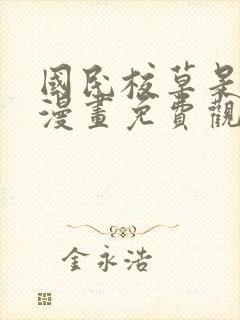 國民校草是
漫畫免費觀
金永浩